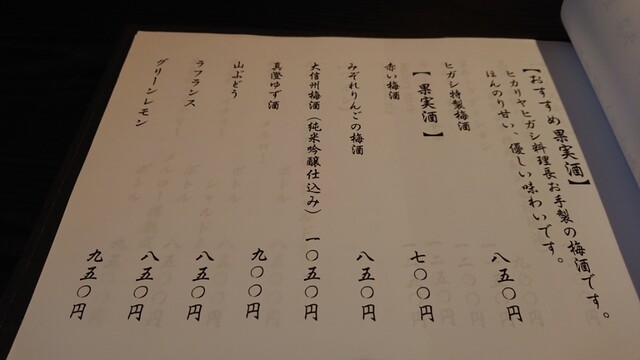 【おすすめ果実酒】
ヒカリヤヒガシ料理長お手製の梅酒です。
ほんのり甘い、優しい味わいです。
ヒガシ特製梅酒 八五〇円
【果実酒】
赤い梅酒 七〇〇円
みぞれりんごの梅酒 八五〇円
大信州梅酒（純米吟醸仕込み） 一〇五〇円
真澄ゆず酒 九〇〇円
山ぶどう 八五〇円
ラフランス 八五〇円
グリーンレモン 九五〇円